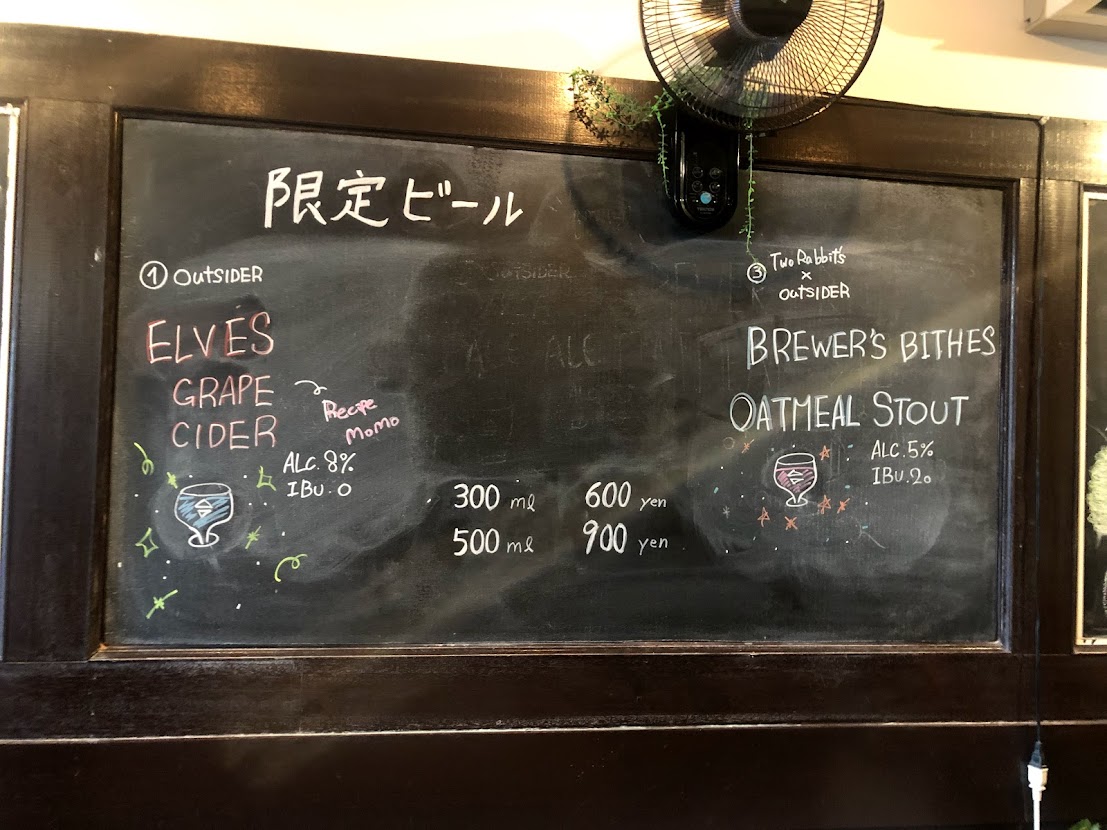 限定ビール
① OUTSIDER
ELVES
GRAPE
CIDER
Recipe
MOMO
ALC. 8%
IBU. 0
300 ml 600 yen
500 ml 900 yen
③ Two Rabbit's
×
OUTSIDER
BREWER'S BITHES
OATMEAL STOUT
ALC. 5%
IBU. 20